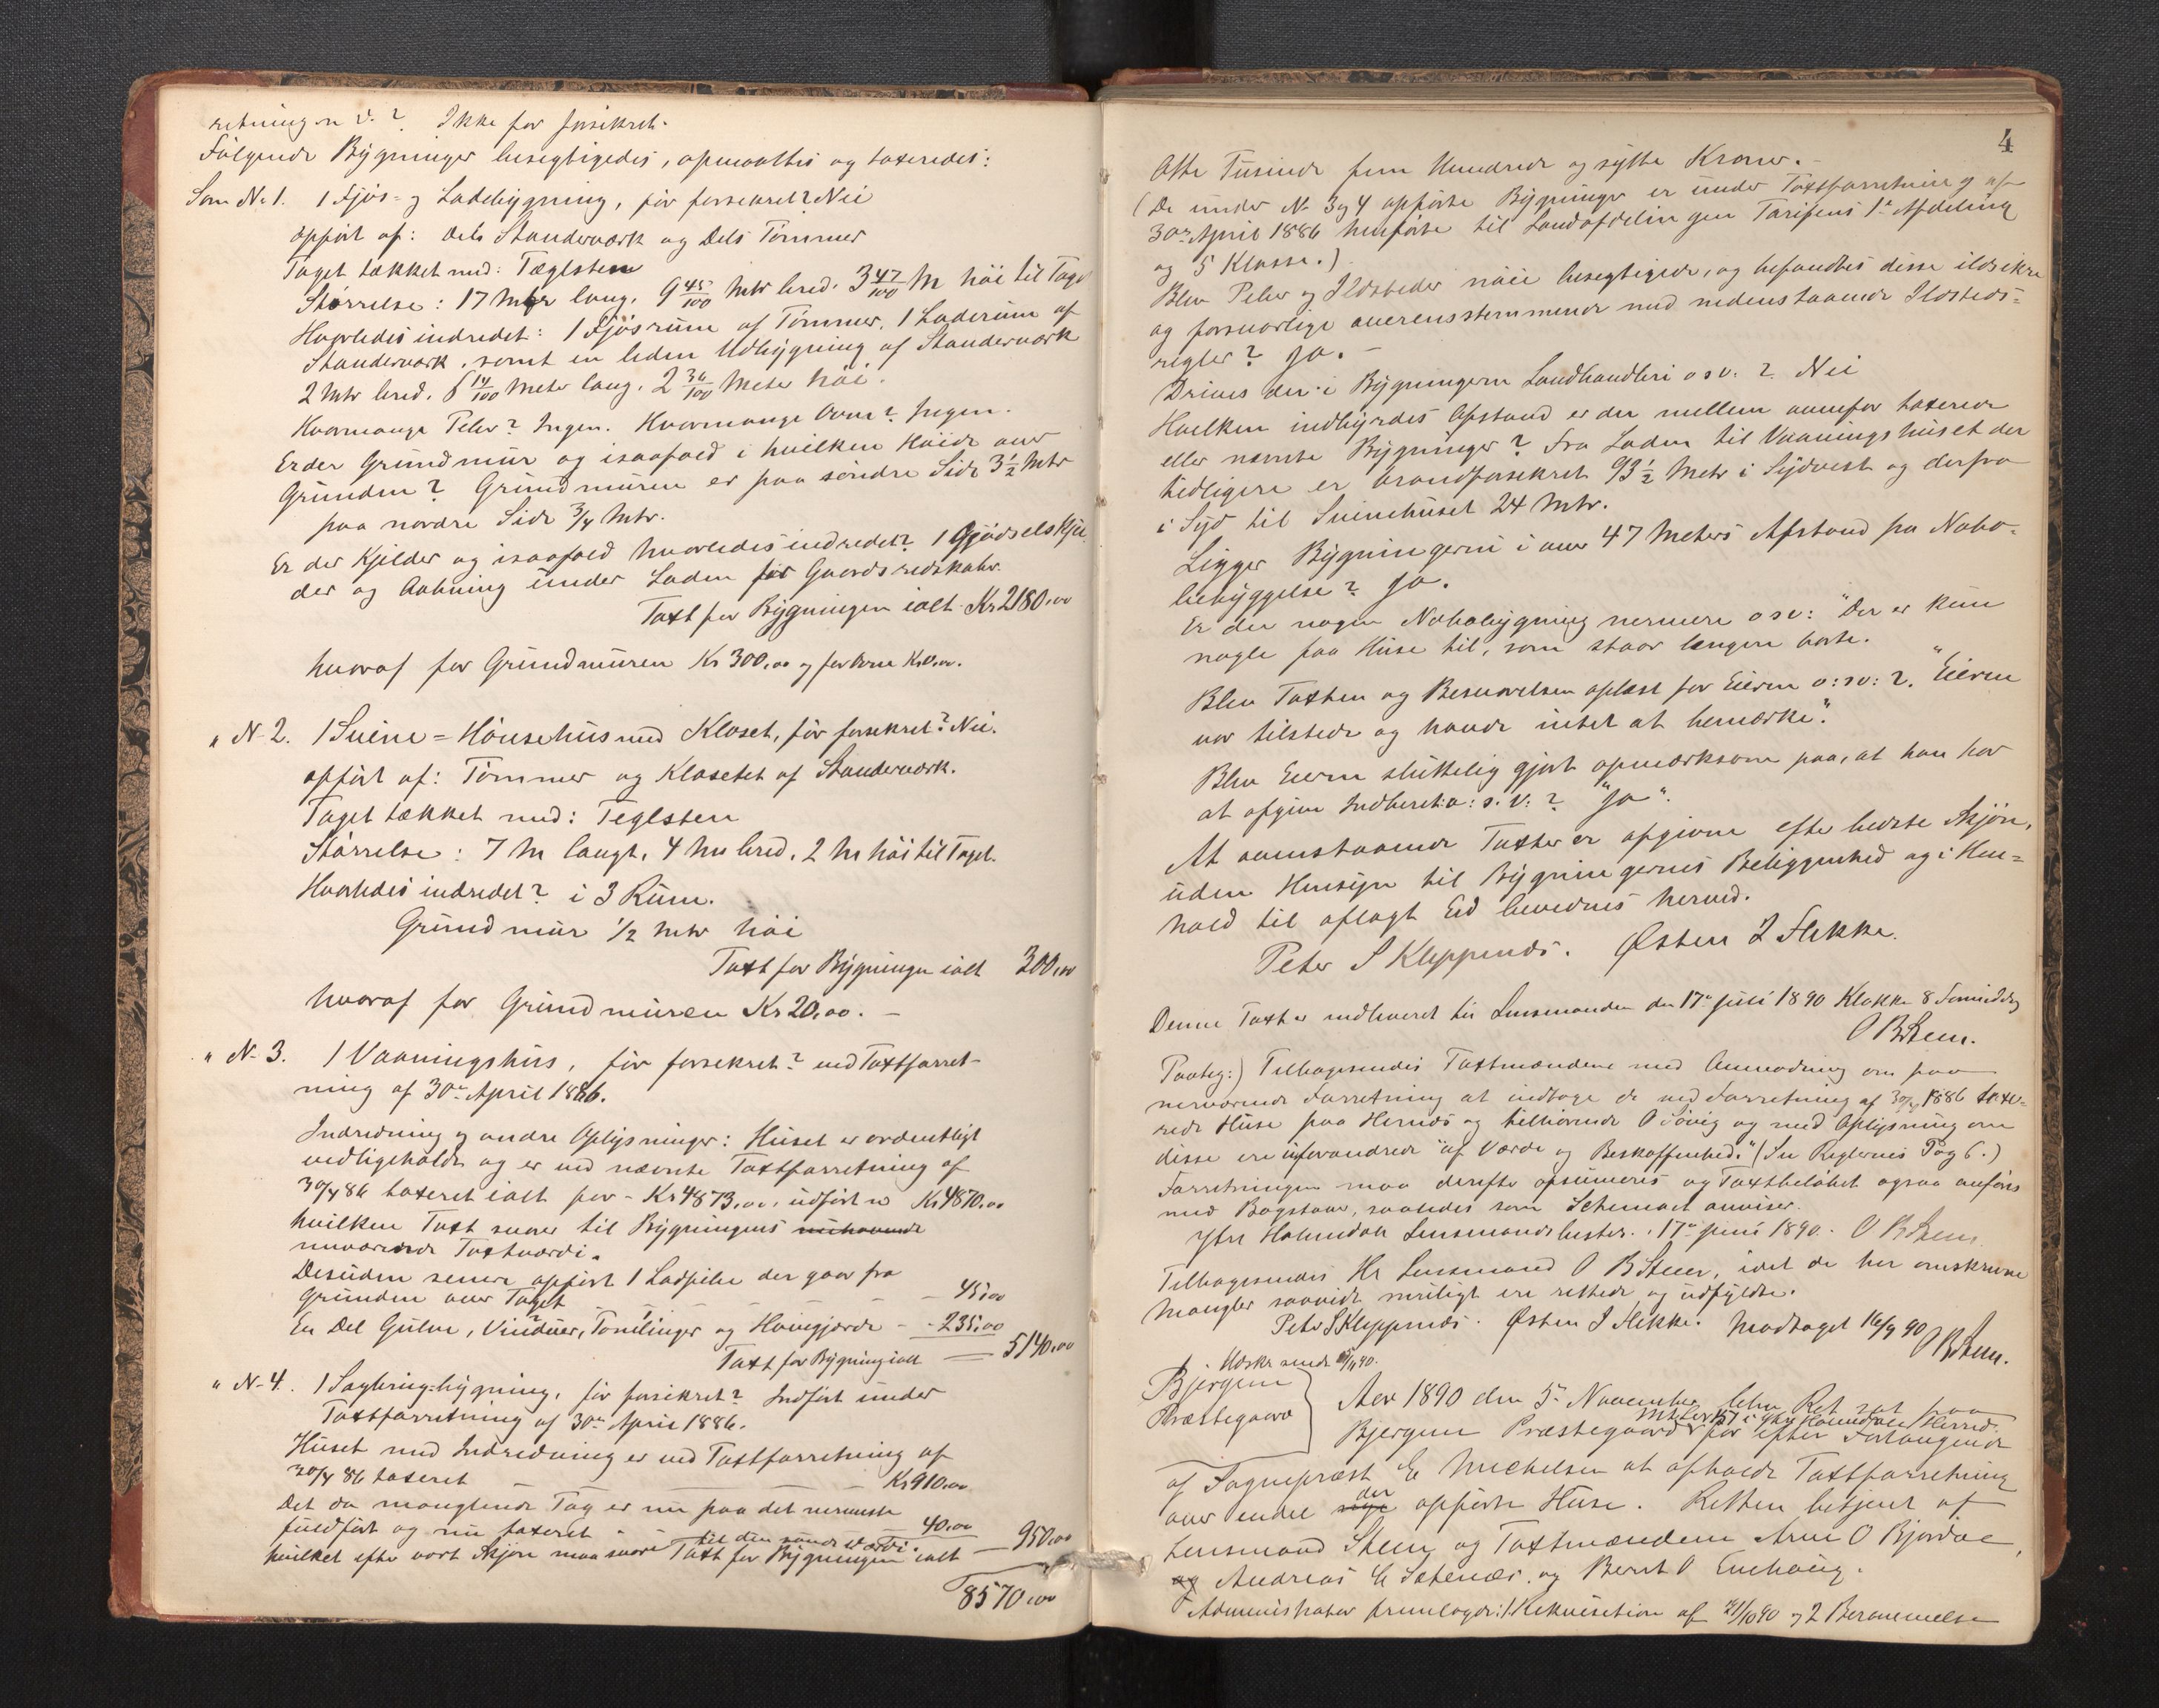 retningen v.? Ikke før forsikret.
Følgende Bygninger besegtigedes, opmaaltes og taxeredes:
Som No 1. 1 Fjøs- og Ladebygning, før forsikret? Nei
opført af: dels Standerværk og dels Tømmer
Taget tækket med: Tæglsten
Størrelse: 17 Mtr lang, 9 45/100 Mtr bred. 3 47/100 M høi til Taget
Hvorledes indredet: 1 Fjøsrum af Tømmer, 1 Laderum af
Standerværk, samt en liden Udbygning af Standerværk
2 Mtr bred, 6 14/100 Meter lang, 2 36/100 Meter høi.
Hvormange Peber? Ingen. Hvormange Ovne? Ingen.
Er der Grundmur og isaafald i hvilken Høide over
Grunden? Grundmuren er paa søndre Side 3 1/2 Mtr
paa nordre Side 3/4 Mtr.
Er der Kjelder og isaafald hvorledes indredet? 1 Gjødselskjel
der og Aabning under Laden for Gaardsredskaber.
Taxt for Bygningen ialt Kr 2180,00
hvoraf for Grundmuren Kr 300,00 og for Ovne Kr 0,00.
" No 2. 1 Svine = Hønsehus med Kloset, før forsekret? Nei.
opført af: Tømmer og Klosetet af Standerværk.
Taget tækket med: Teglsten
Størrelse: 7 M langt, 4 M bred, 2 M høi til Taget.
Hvorledes indredet? i 3 Rum.
Grundmur 1/2 Mtr høi
Taxt for Bygningen ialt 300,00
hvoraf for Grundmuren Kr 20,00. –
" No 3. 1 Vaaningshus, før forsekret? ved Taxtforret-
ning af 30te April 1886.
Indredning og andre Oplysninger: Huset er ordentligt
vedligeholdt og er ved nævnte Taxtforretning af
30/4 86 taxeret ialt for – Kr 4873,00, udført Kr 4870,00
hvilken Taxt svarer til Bygningens
nuværende Taxtværdi.
Desuden senere opført 1 Ladpibe der gaar fra
Grunden over Taget – – – – 45,00
En Del Gulve, Vinduer, Tomtinger og Havegjærde – – 235,00
Taxt for Bygning ialt — 5140,00
" No 4. 1 bygning, før forsikret? Indført under
Taxtforretning af 30te April 1886.
Huset med Indredning er ved Taxtforretning af
30/4 86 taxeret — — — Kr 910,00
Det da manglende Tag er nu paa det nermeste
fuldført og nu taxeret – 40,00
hvilket efter vort Skjøn maa svare til den sande Værdi.
Taxt for Bygningen ialt — 950,00
8570,00
4
Otte Tusinde fem Hundrede og sytti Kroner. –
(De under No 3 og 4 opførte Bygninger er under Taxtforretning af
30te April 1886 henførte til Landafdelingen Tarifens 1te Afdeling
og 5 Klasse.)
Blev Peber og Ildsteder nøie besegtigede, og befandtes disse ildsikre
og forsvarlige overensstemmende med nedenstaaende Ildsteds-
regler? Ja. –
Drives der i Bygningerne Landhandleri o s v. ? Nei
Hvilken indbyrdes Afstand er der mellem ovenfor taxerede
eller nævnte Bygninger? Fra Laden til Vaaningshuset der
tidligere er brandforsekret 93 1/2 Metr i Sydvest og derfra
i Syd til Svinehuset 24 Mtr.
Ligger Bygningerne i over 47 Meters Afstand fra Nabo-
bebyggelse? Ja.
Er der nogen Nabobygning nermere o s v: "Der er kun
nogle faa Huse til, som staar længere borte.
Blev Taxten og Beskrivelsen oplæst for Eieren o: s v: ? "Eieren
var tilstede og havde intet at bemærke".
Blev Eieren sluttelig gjort opmærksom paa, at han har
at afgive Indberet: o: s. v: ? "Ja".
At ovenstaaende Taxter er afgivne efter bedste Skjøn,
uden Hensyn til Bygningernes Beliggenhed og i Hen-
hold til aflagt Ed bevidnes herved.
Peter S Kleppenæs. Østen I Flekke.
Denne Taxt er indleveret til Lensmanden den 17de Juli 1890 Klokken 8 Formiddag
O B Steen.
Paateg:) Tilbagesendes Taxtmændene med Anmodning om paa
nerværende Forretning at indtage de ved Forretning af 30/4 1886 taxe-
rede Huse paa Hernæs og tilhørende O Søvig og med Oplysning om
disse ere uforandrede "af Værdi og Beskaffenhed". (Se Reglernes Pag 6.)
Forretningen maa derefter opsumeres og Taxtbeløbet ogsaa anføres
med Bogstaver, saaledes som Schemaet anviser.
Ytre Holmedals Lensmandsbestil. 17de Juni 1890. O B Steen
Tilbagesendes Hr Lensmand O B Steen, idet de her omskrevne
Mangler saavidt muligt ere rettede og udfyldte.
Peter S Kleppenæs. Østen I Flekke. Modtaget 16/9 90
O B Steen.
sendt 90.
Bjergum
Præstegaard
Aar 1890 den 5te November blev Ret sat paa
Bjergum Præstegaard Mtr No 151 i Ytre Holmedals Herred
for efter Forlangende
af Sognepræst E Michelsen at afholde Taxtforretning
over endel der opførte Huse. Retten betjent af
Lensmand Steen og Taxtmændene Arne O Bjordal,
Andreas E Sætenæs. og Bernt O Enehaug.
Administrator fremlagde: 1. Rekvisition af 21/10 90 og 2 Berammelse